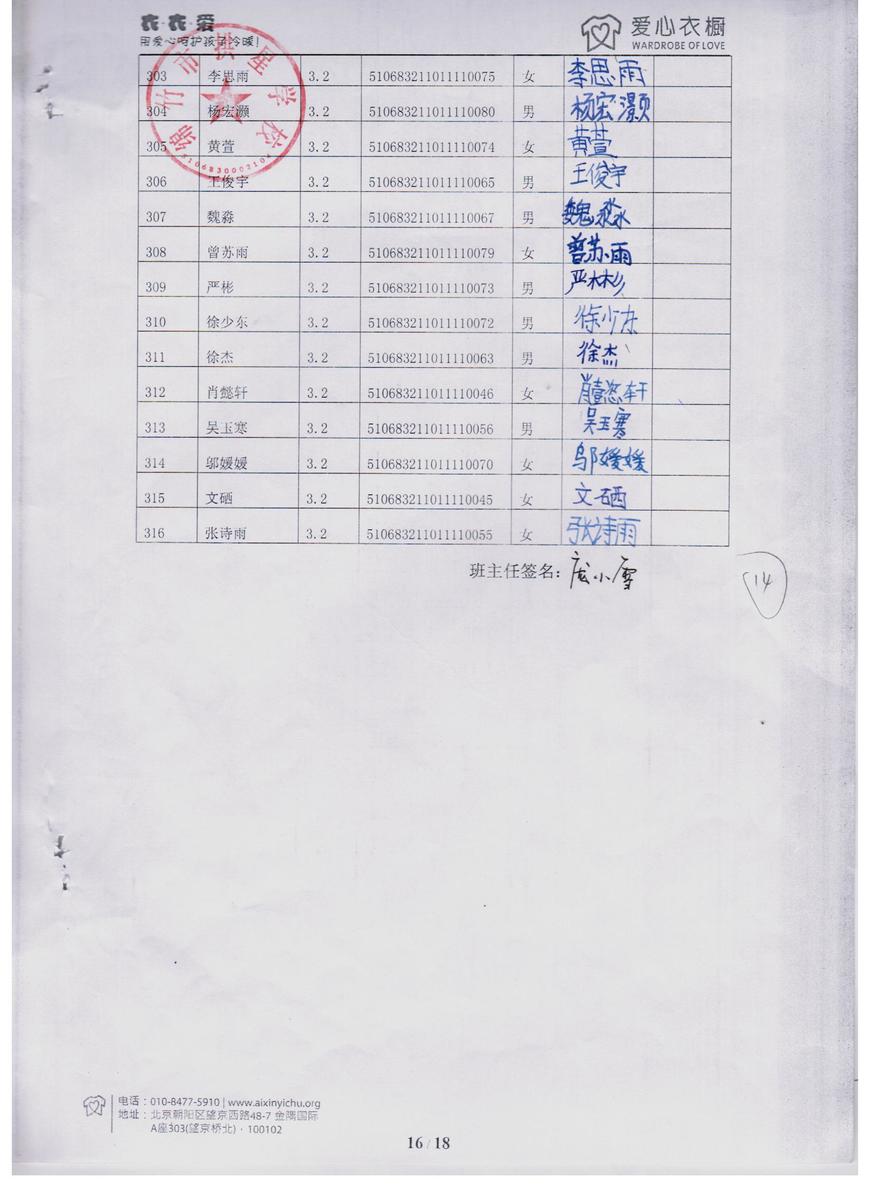 衣·衣·爱
用爱心呵护孩子冷暖!
爱心衣橱
WARDROBE OF LOVE
绵竹市拱星学校
5106830003104
303 李思雨 3.2 510683211011110075 女 李思雨
304 杨宏灏 3.2 510683211011110080 男 杨宏灏
305 黄萱 3.2 510683211011110074 女 黄萱
306 王俊宇 3.2 510683211011110065 男 王俊宇
307 魏淼 3.2 510683211011110067 男 魏淼
308 曾苏雨 3.2 510683211011110079 女 曾苏雨
309 严彬 3.2 510683211011110073 男 严彬
310 徐少东 3.2 510683211011110072 男 徐少东
311 徐杰 3.2 510683211011110063 男 徐杰
312 肖懿轩 3.2 510683211011110046 女 肖懿轩
313 吴玉寒 3.2 510683211011110056 男 吴玉寒
314 邬媛媛 3.2 510683211011110070 女 邬媛媛
315 文硒 3.2 510683211011110045 女 文硒
316 张诗雨 3.2 510683211011110055 女 张诗雨
班主任签名: 庞小雪
14
电话:010-8477-5910 | www.aixinyichu.org
地址:北京朝阳区望京西路48-7 金隅国际
A座303(望京桥北)·100102
16 / 18